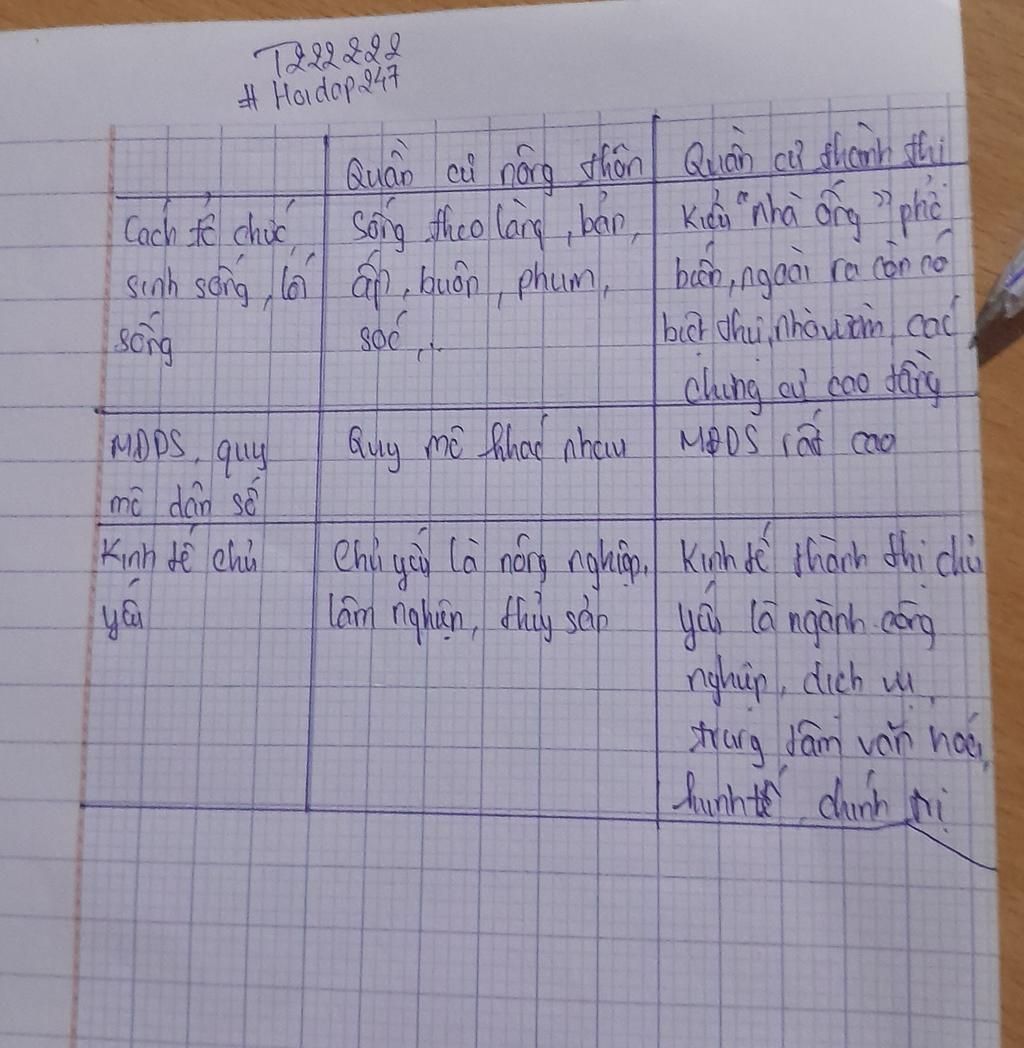 T222222
# Hoidap247
Quần cư nông thôn
Quần cư thành thị
Cách tổ chức
sinh sống, lối
sống
Sống theo làng, bản,
ấp, buôn, phum,
sóc,..
Kiểu "nhà ống" phổ
biến, ngoài ra còn có
biệt thự, nhà vườn, các
chung cư cao tầng
MĐDS, quy
mô dân số
Quy mô khác nhau
MĐDS rất cao
Kinh tế chủ
yếu
Chủ yếu là nông nghiệp,
lâm nghiệp, thủy sản
Kinh tế thành thị chủ
yếu là ngành công
nghiệp, dịch vụ,
trung tâm văn hoá,
kinh tế, chính trị